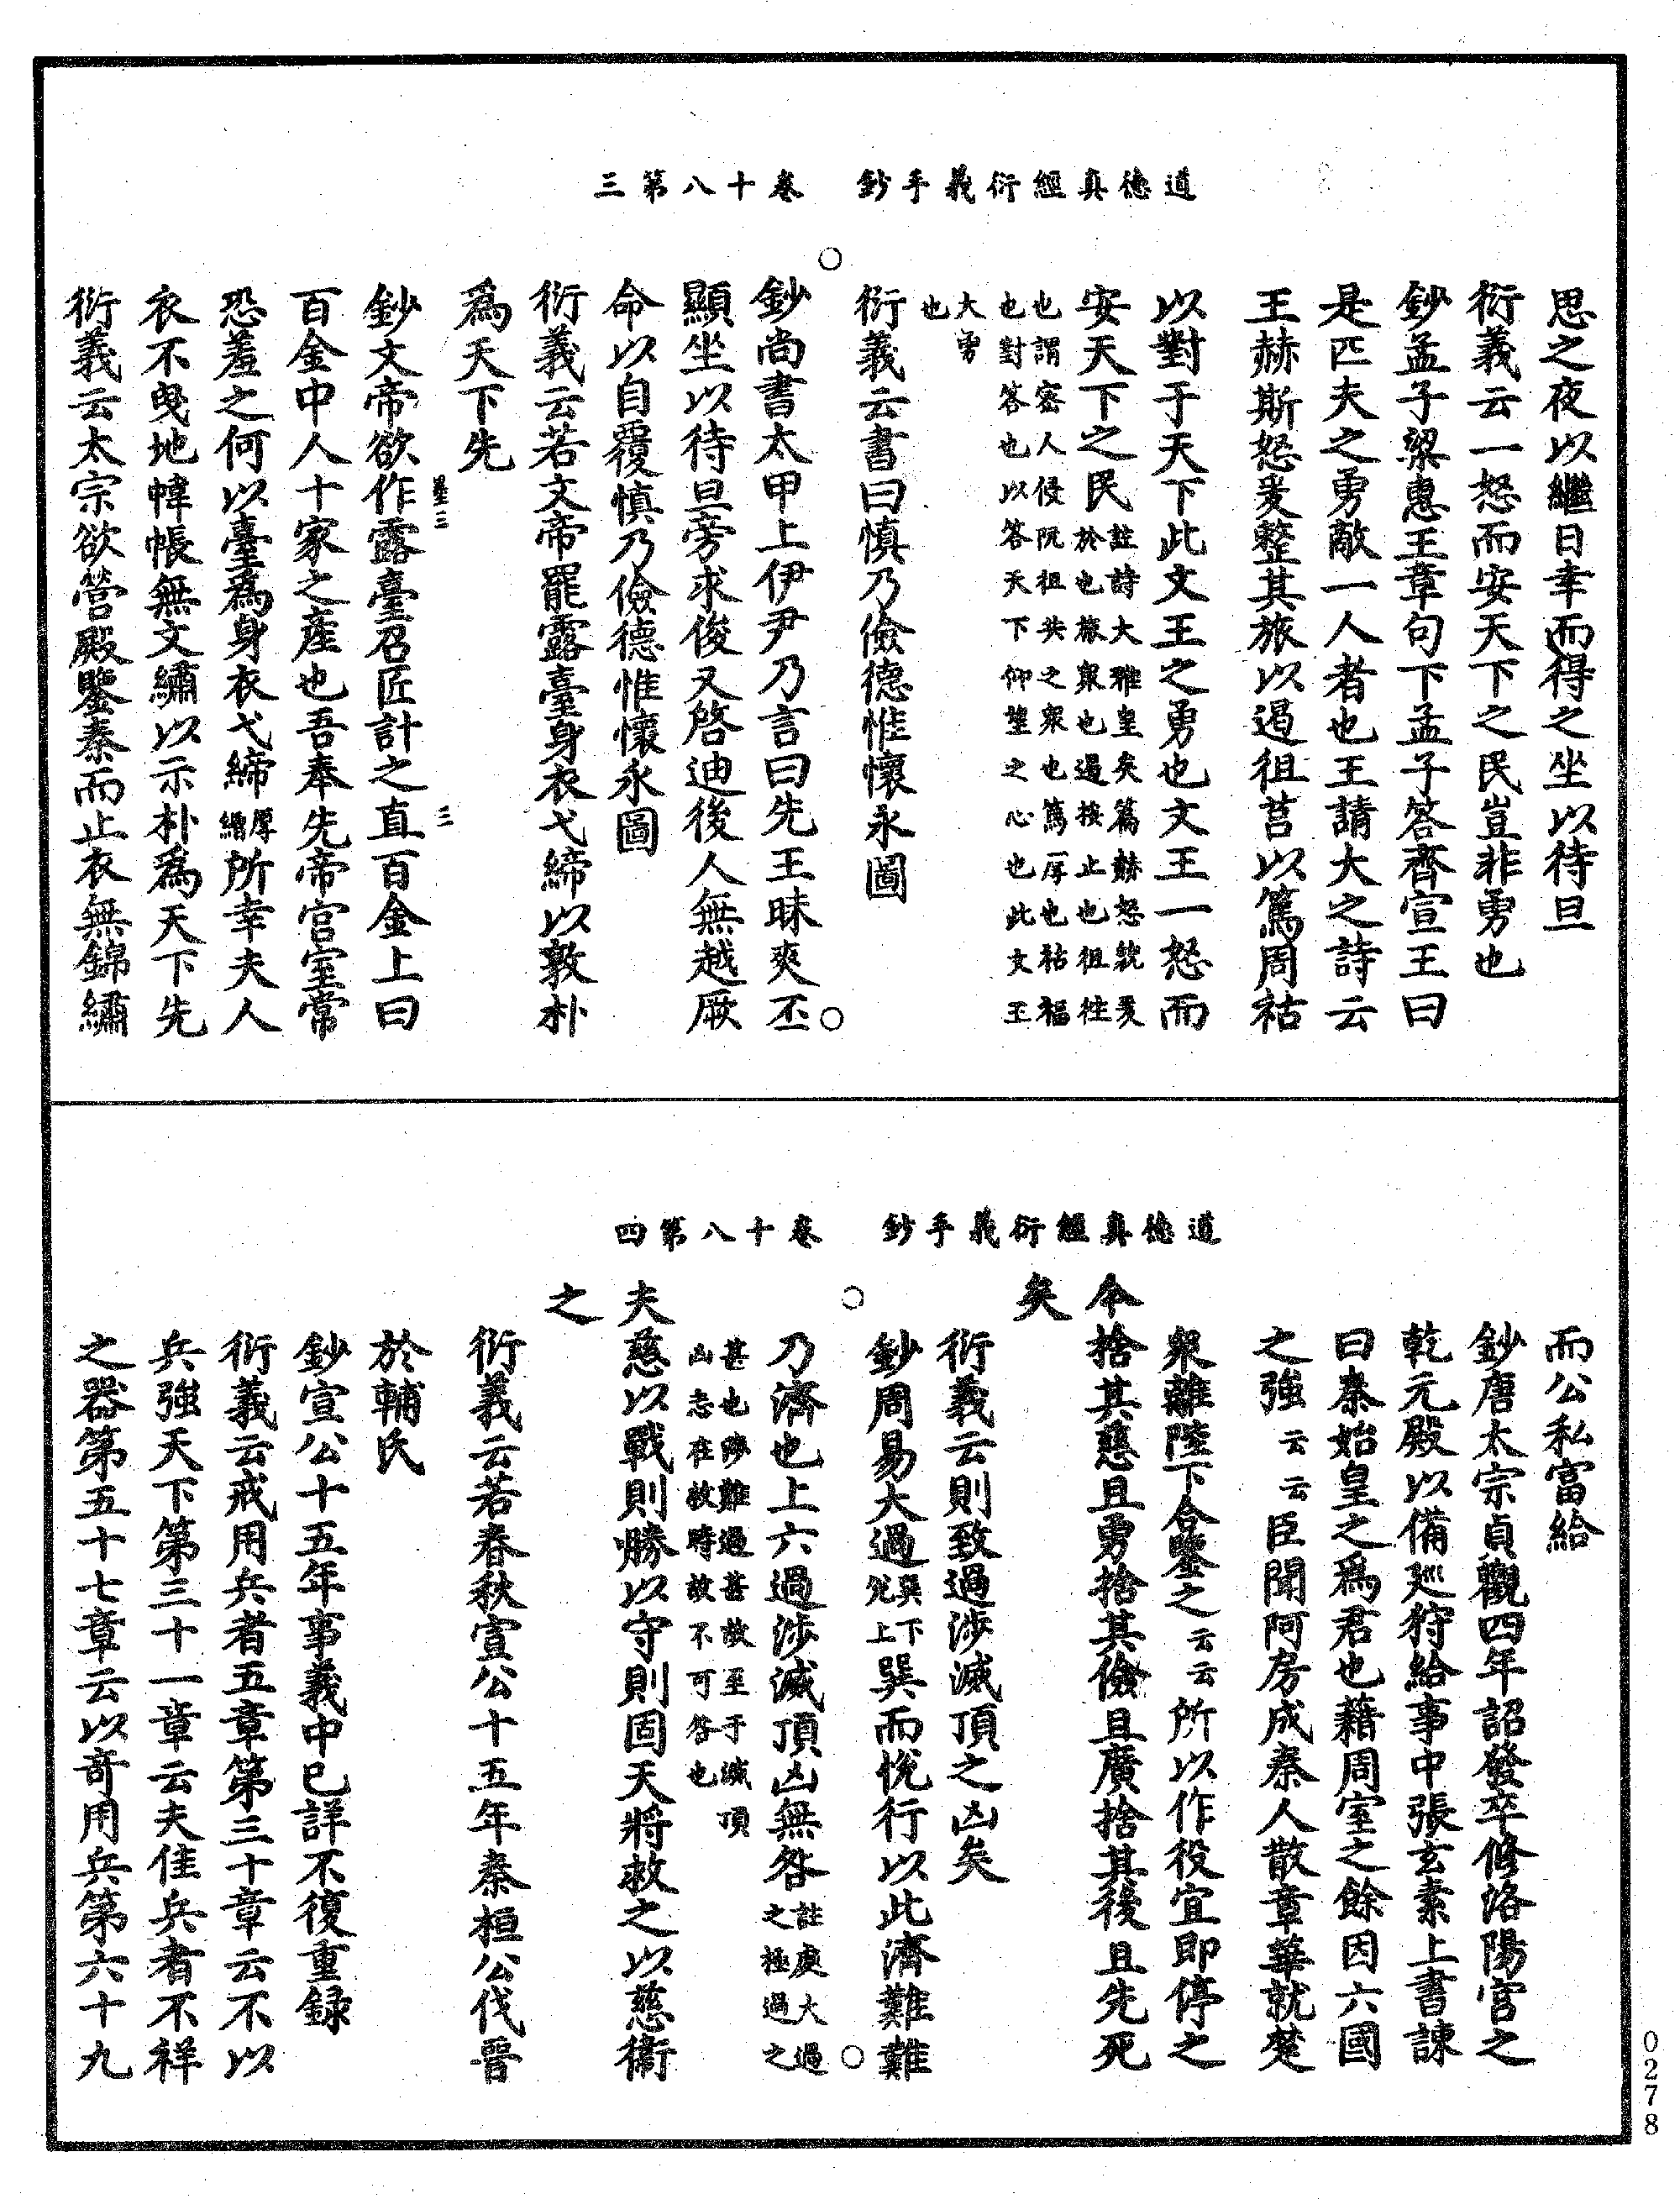 道德真經衍義手鈔　卷十八第三
思之夜以繼日幸而得之坐以待旦
衍義云一怒而安天下之民豈非勇也
鈔孟子梁惠王章句下孟子答齊宣王曰
是匹夫之勇敵一人者也王請大之詩云
王赫斯怒爰整其旅以遏徂莒以篤周祜
以對于天下此文王之勇也文王一怒而
安天下之民註詩大雅皇矣篇赫怒貌爰
於也旅衆也遏按止也徂往
也謂密人侵阮徂共之衆也篤厚也祜福
也對答也以答天下仰望之心也此文王
大勇
也
衍義云書曰慎乃儉德惟懷永圖
鈔尚書太甲上伊尹乃言曰先王昧爽丕
顯坐以待旦旁求俊乂啓迪後人無越厥
命以自覆慎乃儉德惟懷永圖
衍義云若文帝罷露臺身衣弋綈以敦朴
為天下先
鈔文帝欲作露臺召匠計之直百金上曰
百金中人十家之產也吾奉先帝宮室常
恐羞之何以臺為身衣弋綈厚繒所幸夫人
衣不曳地幃帳無文繡以示朴為天下先
衍義云太宗欲營殿鑒秦而止衣無錦繡
道德真經衍義手鈔　卷十八第四
而公私富給
鈔唐太宗貞觀四年詔發卒修洛陽宮之
乾元殿以備巡狩給事中張玄素上書諫
曰秦始皇之為君也藉周室之餘因六國
之強云云臣聞阿房成秦人散章華就楚
衆離陛下合鑒之云云所以作役宜即停之
今捨其慈且勇捨其儉且廣捨其後且先死
矣
衍義云則致過涉滅頂之凶矣
鈔周易大過巽下兌上巽而悅行以此濟難難
乃濟也上六過涉滅頂凶無咎註處大過
之極過之
甚也涉難過甚故至于滅頂
凶志在救時故不可咎也
夫慈以戰則勝以守則固天將救之以慈衛
之
衍義云若春秋宣公十五年秦桓公伐晉
於輔氏
鈔宣公十五年事義中已詳不復重録
衍義云戒用兵者五章第三十章云不以
兵強天下第三十一章云夫佳兵者不祥
之器第五十七章云以奇用兵第六十九
0278